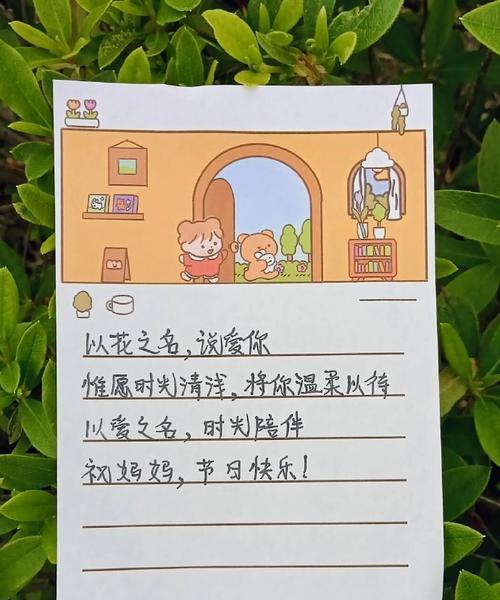 以花之名,说爱你
惟愿时光清浅,将你温柔以待
以爱之名,时光陪伴
祝妈妈,节日快乐!